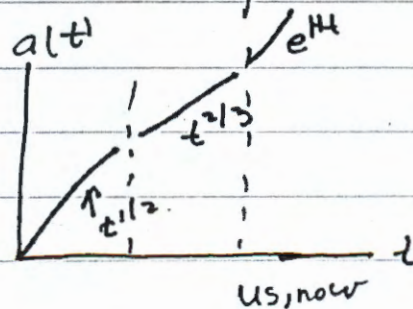 a(t)
e^Ht
t^2/3
t^1/2.
t
us, now